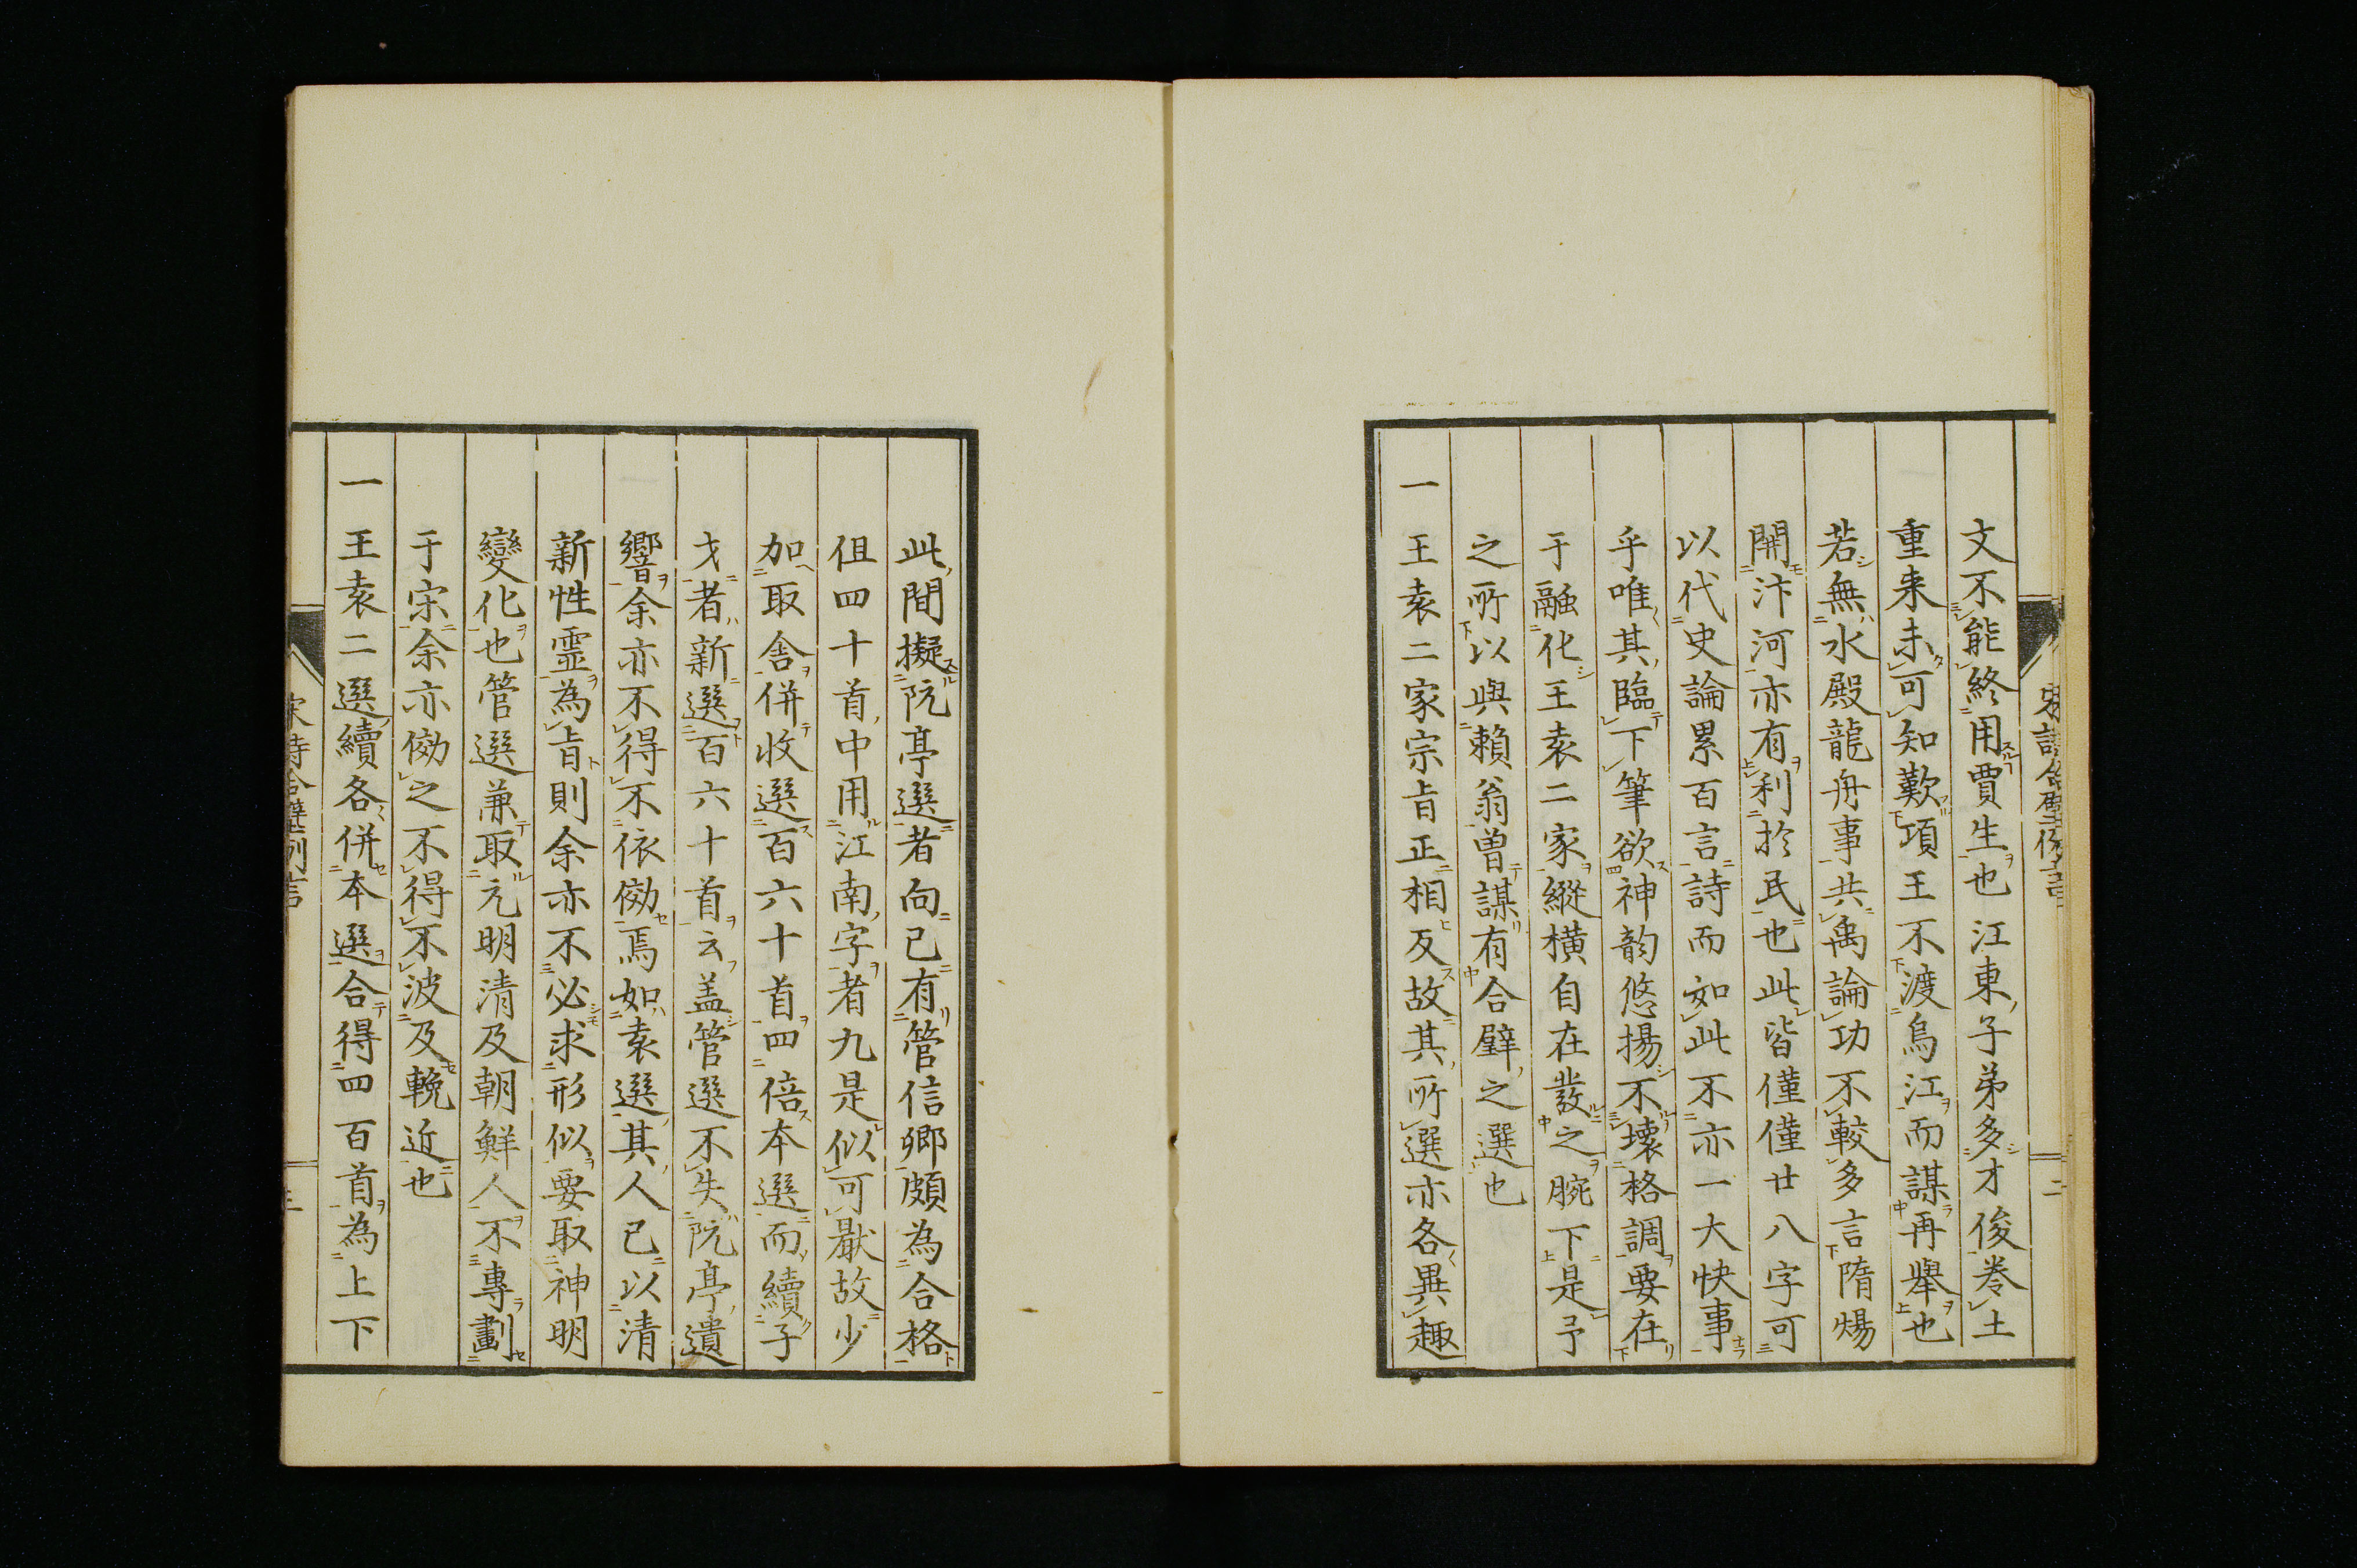 宋詩合璧例言
二
文不能終用賈生也江東子弟多才俊巻土
重来未可知歎項王不渡烏江而謀再舉也
若無水殿龍舟事共禹論功不較多言隋煬
開汴河亦有利於民也此皆僅僅廿八字可
以代史論累百言詩而如此不亦一大快事
乎唯其臨下筆欲神韵悠揚不壊格調要在
于融化王袁二家縱横自在發之腕下是予
之所以與賴翁曽謀有合璧之選也
一王袁二家宗旨正相反故其所選亦各異趣
此間擬阮亭選者向已有管信卿頗為合格
但四十首中用江南字者九是似可厭故少
加取舎併收選百六十首四倍本選而續子
才者新選百六十首云盖管選不失阮亭遺
響余亦不得不依傚焉如袁選其人已以清
新性霊為旨則余亦不必求形似要取神明
變化也管選兼取元明清及朝鮮人不專劃
于宋余亦傚之不得不波及輓近也
一王袁二選續各併本選合得四百首為上下
宋詩合璧例言
三